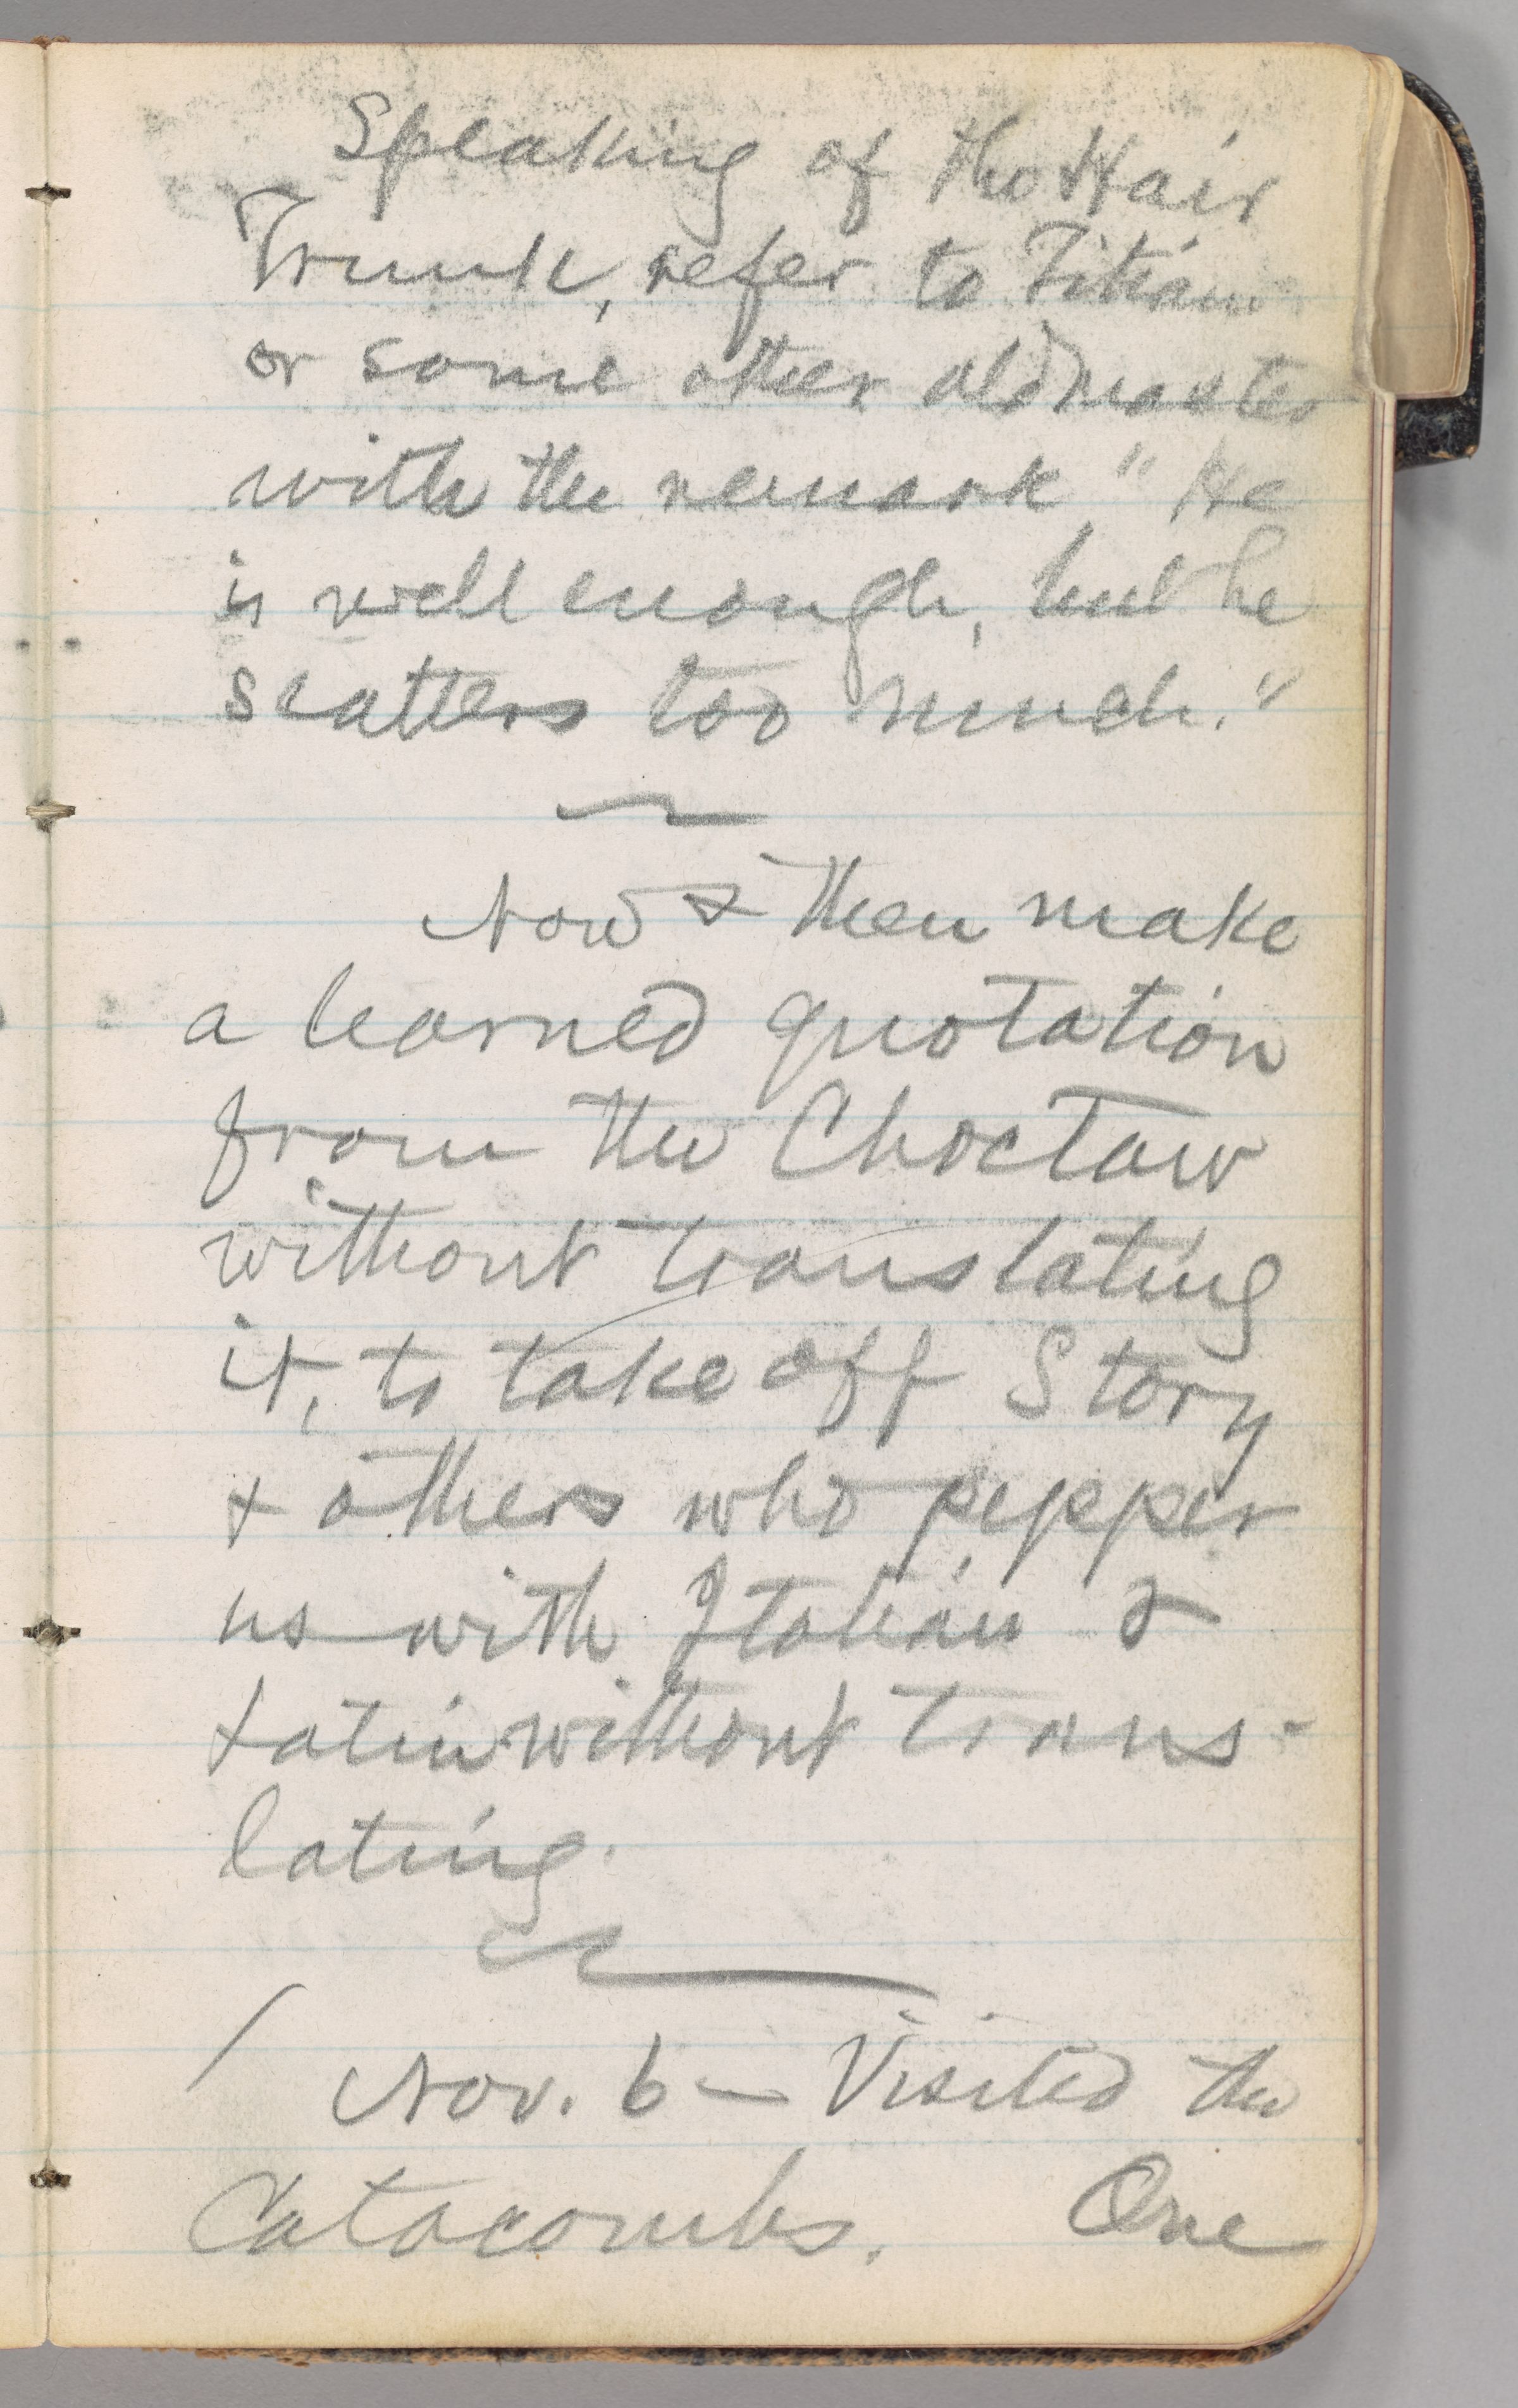 Speaking of the Hair
Trunk, refer to Titian
or some other old master
with the remark "He
is well enough, but he
scatters too much."
Now & then make
a learned quotation
from the Choctaw
without translating
it, to take off Story
& others who pepper
us with Italian &
Latin without trans-
lating.
Nov. 6 — Visited the
Catacombs. One